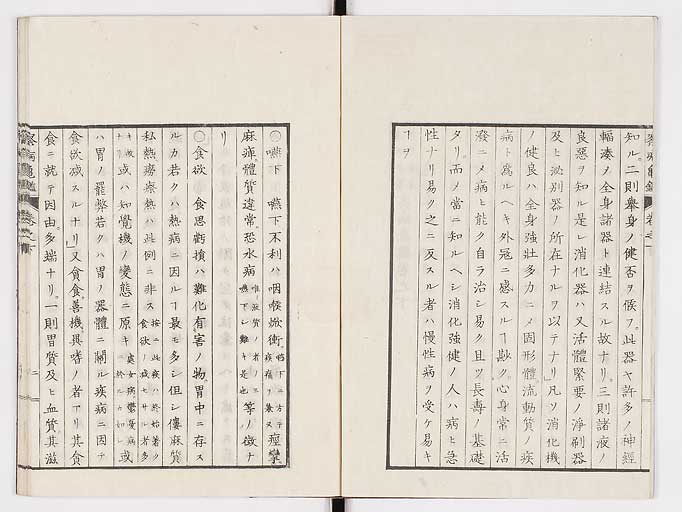 知ル。二則擧身ノ健否ヲ候フ。此器ヤ許多ノ神經
輻湊ノ全身諸器ト連結スル故ナリ。三則諸液ノ
良惡ヲ知ル是レ消化器ハ又活體緊要ノ淨刷器
及ヒ泌別器ノ所在ナルヲ以テナリ凡ソ消化機
ノ健良ハ全身強壯多力ニメ固形體流動質ノ疾
病ト爲ルヘキ外冦ニ感スルヿ尠ク。心身常ニ活
潑ニメ病ヒ能ク自ラ治シ易ク且ツ長壽ノ基礎
タリ。而メ當ニ知ルヘシ消化強健ノ人ハ病ヒ急
性ナリ易ク之ニ反スル者ハ慢性病ヲ受ケ易キ
ヿヲ
○嚥下 嚥下不利ハ咽喉焮衝。嚥下ニ方テ疾痛ヲ兼ヌ 痙攣
麻痺體質違常。恐水病 唯液質ノ者ノミ嚥下シ難キ是也 等ノ徴ナ
リ
○食欲 食思虧損ハ難化有害ノ物。胃中ニ存ス
ルカ若クハ熱病ニ因ルヿ最モ多シ但シ僂麻質
私熱癆瘵熱ハ此例ニ非ス 按ニ此疾ハ終始著ク食欲ノ減セサル者多
キ故ナリ 或ハ知覺機ノ變態ニ原キ 處女病鬱憂病ニ於ルカ如シ 或
ハ胃ノ罷弊若クハ胃ノ器體ニ關ル疾病ニ因テ
食欲減スルナリ」又貪食善機異嗜ノ者アリ其食
食ニ就テ因由。多端ナリ。一則胃質及ヒ血質其滋
察病龜鑑 卷之下
二